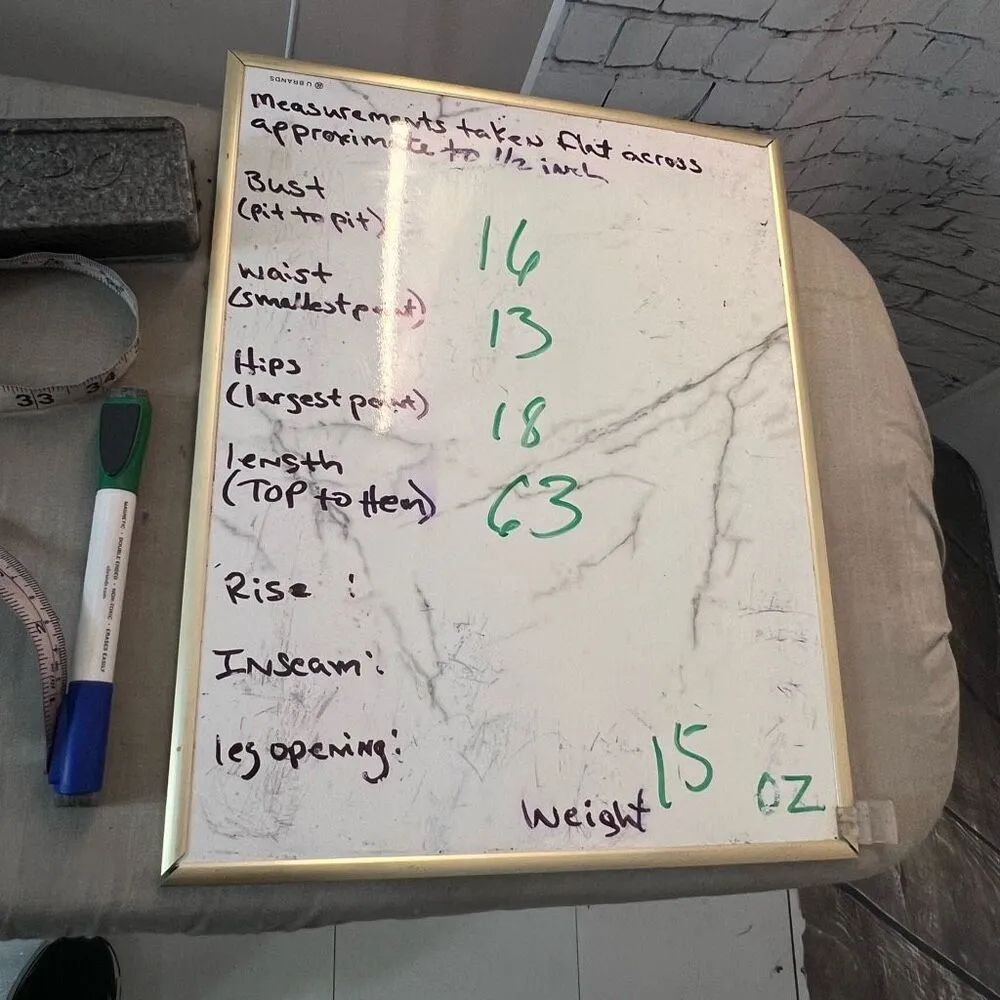 U BRANDS
Measurements taken flat across
approximate to 1/2 inch
Bust
(pit to pit)
16
waist
(smallest point)
13
Hips
(largest point)
18
length
(TOP to Hem)
63
Rise :
Inseam:
leg opening:
Weight 15 OZ
33 34
MAGNETIC • DOUBLE ENDED • NON-TOXIC • ERASES EASILY